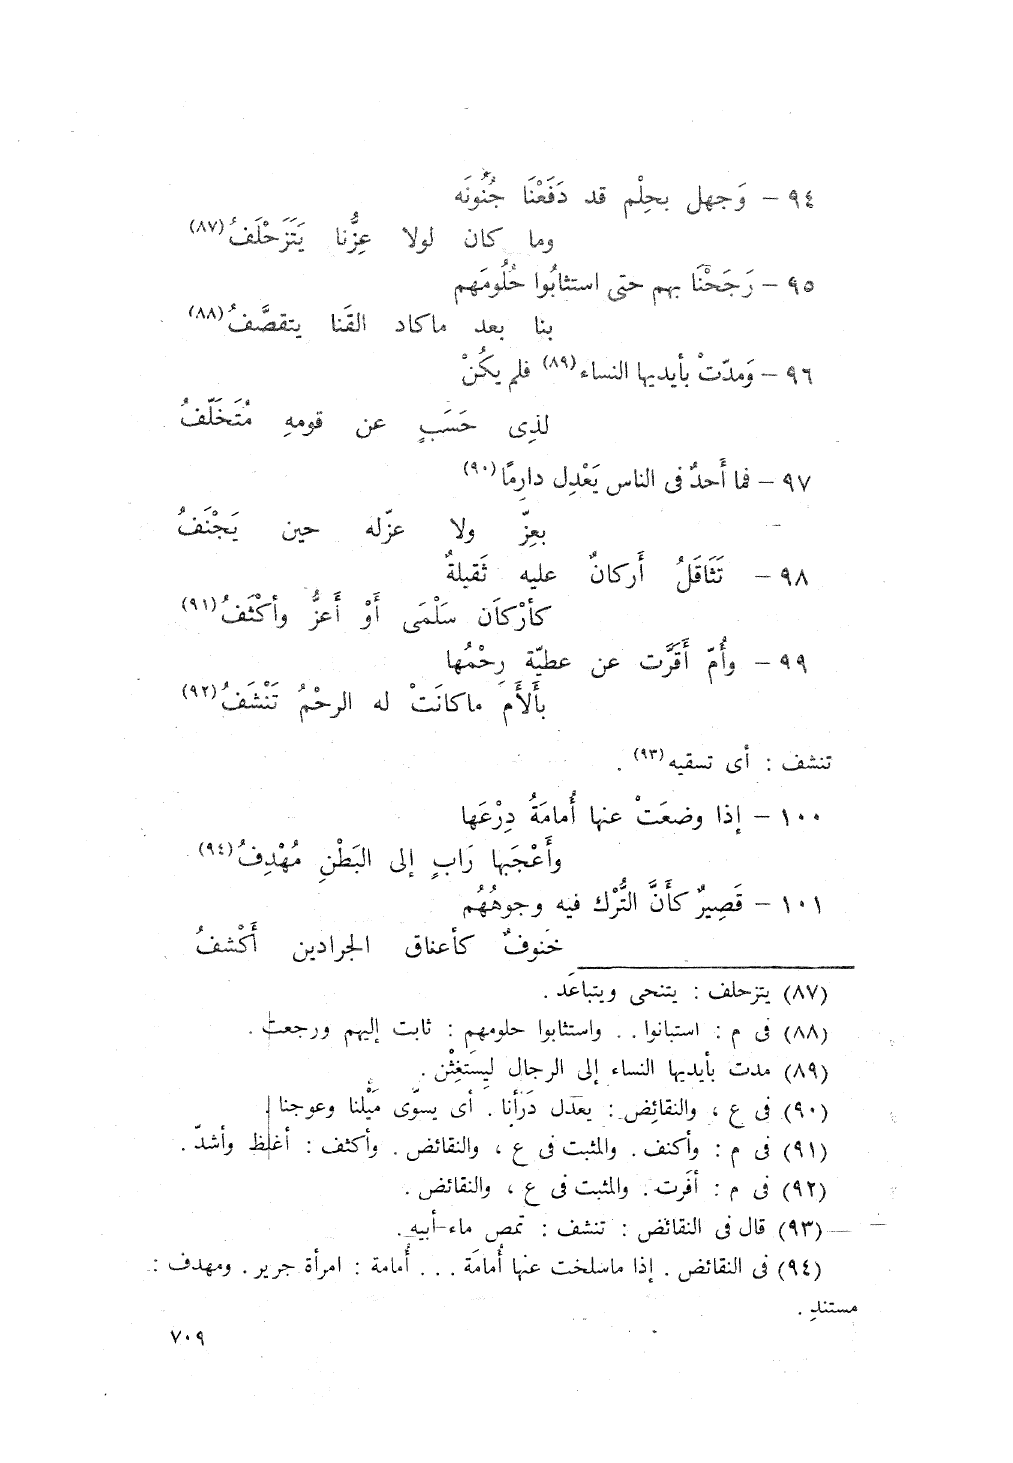 ٩٤ – وَجهل بحِلْم قد دَفَعْنَا جُنُونَه
وما كان لولا عِزُّنا يَتَزَحْلَفُ (٨٧)
٩٥ – رَجَحْنَا بهم حتى استثابُوا حُلُومَهم
بنا بعد ماكاد القَنا يتقصَّفُ (٨٨)
٩٦ – وَمدّتْ بأيديها النساء (٨٩) فلم يكُنْ
لذِى حَسَبٍ عن قومهِ مُتَخَلّفُ
٩٧ – فما أَحدٌ فى الناس يَعْدِل دارِمًا (٩٠)
بعِزّ ولا عزّله حين يَجْنَفُ
٩٨ – تَثَاقَلُ أَركانٌ عليه ثَقيلةٌ
كأرْكاَن سَلْمَى أَوْ أَعزُّ وأكْثَفُ (٩١)
٩٩ – وأُمّ أَقَرَّت عن عطيّة رِحْمُها
بأَلأَمَ ماكانَتْ له الرحْمُ تَنْشَفُ (٩٢)
تنشف : أى تسقيه (٩٣) .
١٠٠ – إذا وضعَتْ عنها أُمامَةُ دِرْعَها
وأَعْجَبها رَابٍ إلى البَطْنِ مُهْدِفُ (٩٤)
١٠١ – قَصِيرٌ كأَنَّ التُّرْك فيه وجوهُهُم
خَنوفٌ كأعناق الجرادين أَكْشفُ
(٨٧) يتزحلف : يتنحى ويتباعد .
(٨٨) فى م : استبانوا . . واستثابوا حلومهم : ثابت إليهم ورجعت .
(٨٩) مدت بأيديها النساء إلى الرجال ليستغِثْن .
(٩٠) فى ع ، والنقائِض : يعدل دَرأنا . أى يسوّى مَيْلنا وعوجنا .
(٩١) فى م : وأكنف . والمثبت فى ع ، والنقائض . وأكثف : أغلظ وأشدّ .
(٩٢) فى م : أفَرت . والمثبت فى ع ، والنقائض .
(٩٣) قال فى النقائض : تنشف : تمص ماء أبيه .
(٩٤) فى النقائض . إذا ماسلخت عنها أُمامَة . . . أُمامة : امرأة جرير . ومهدف :
مستند .
٧٠٩